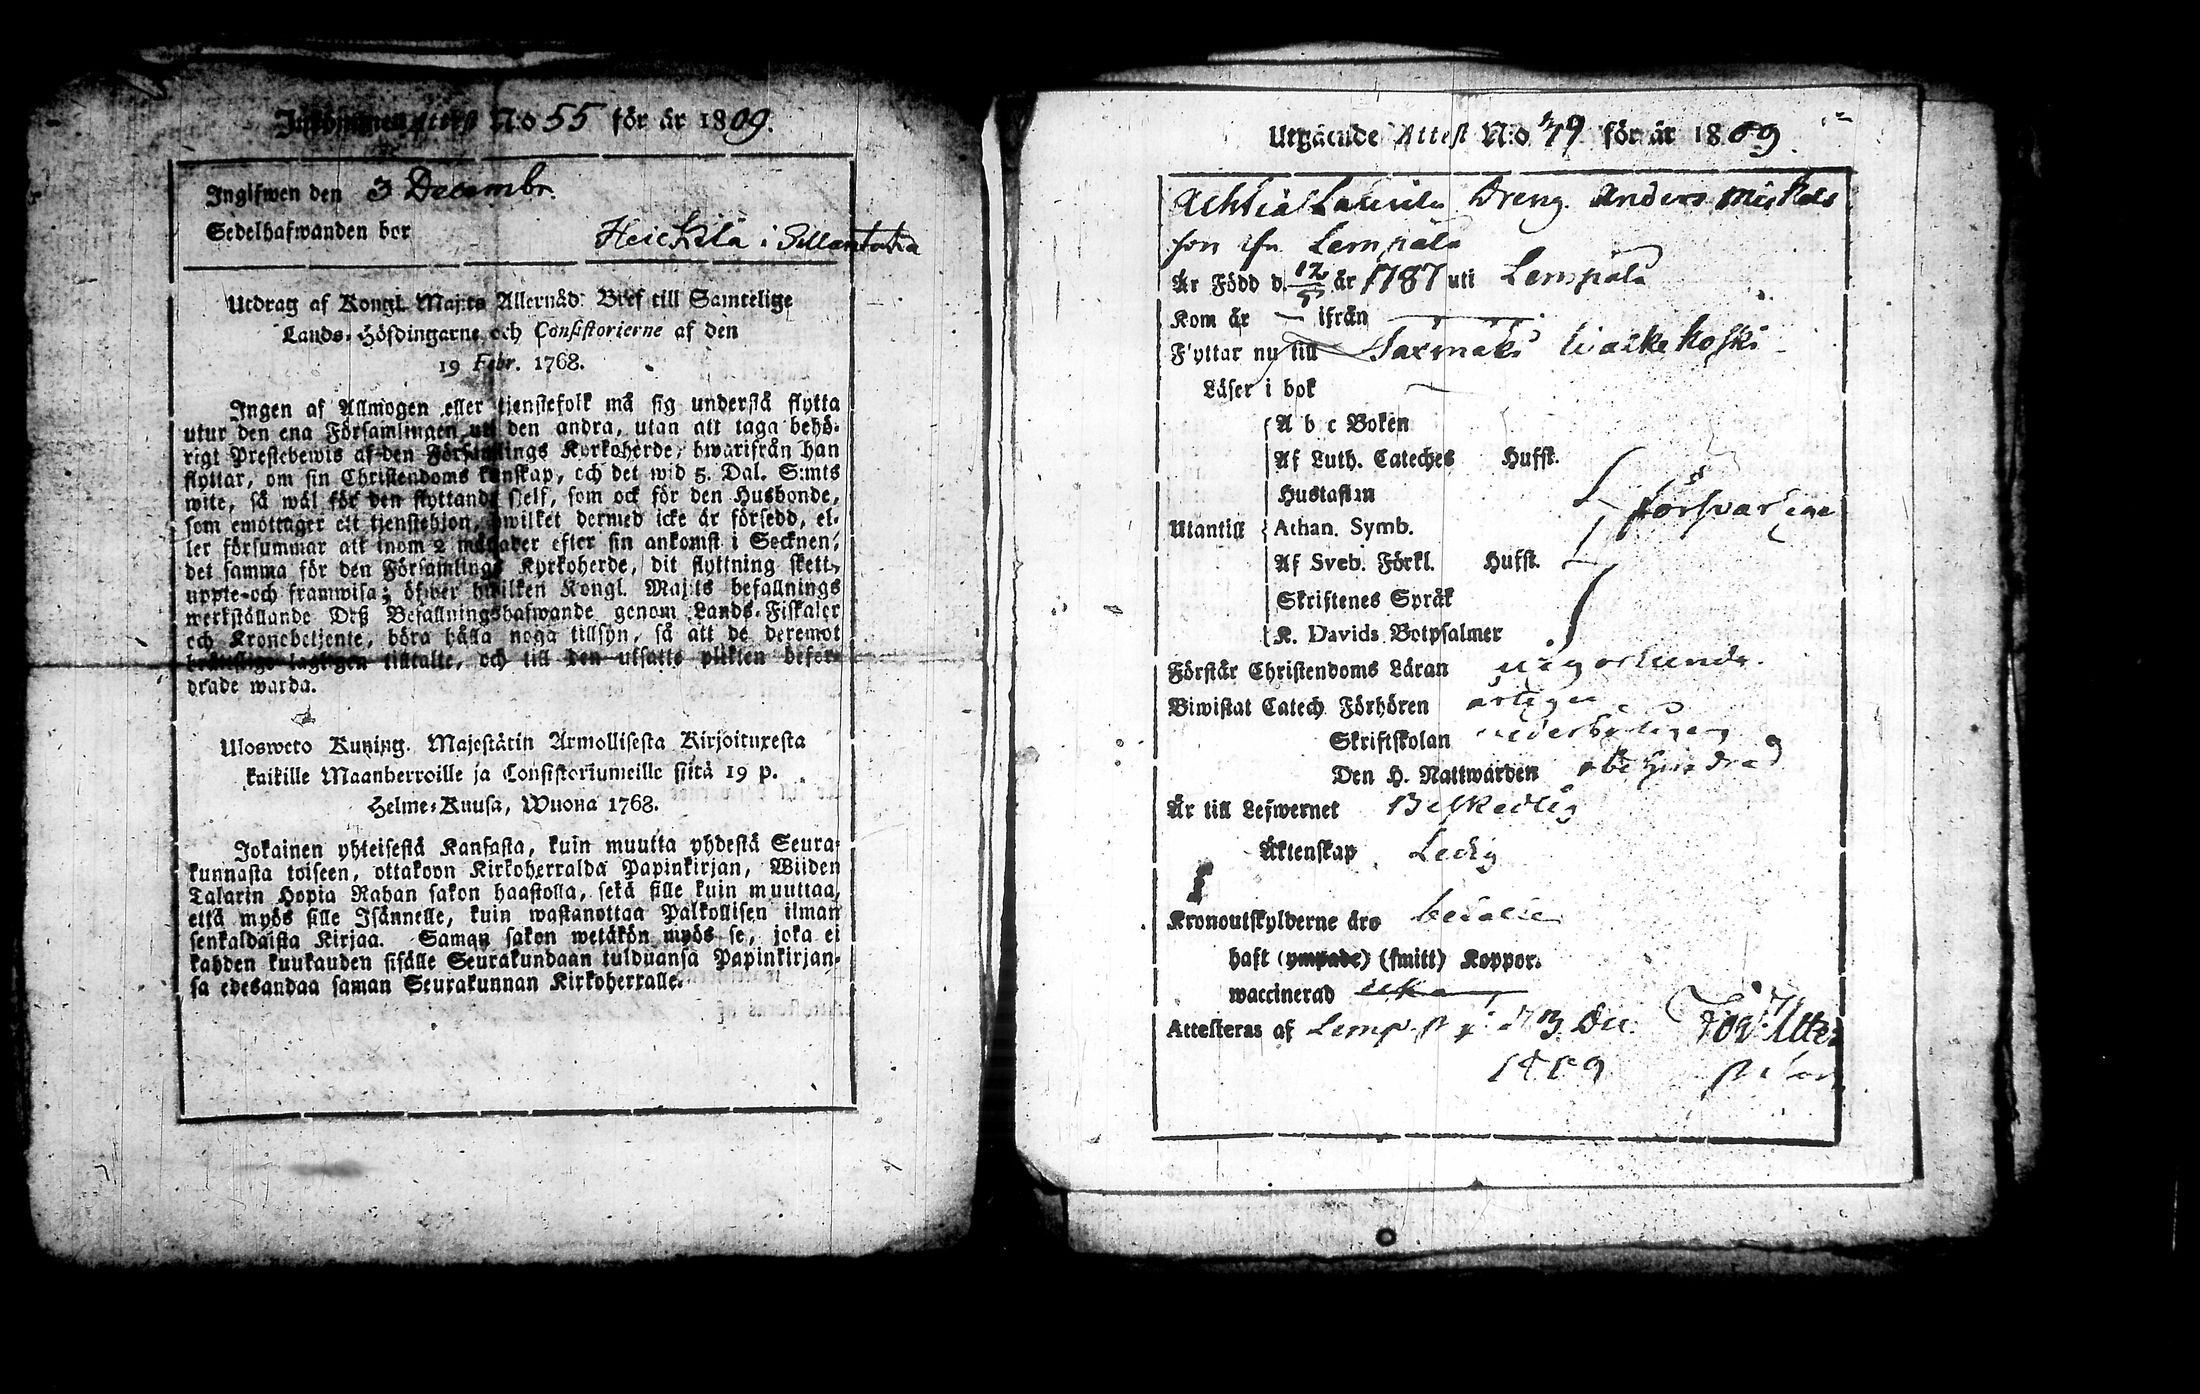 Inkommen Attest N:o 55 för år 1809.
Ingifwen den 3 Decembr.
Sedelhafwanden bor Heickilä i
Utdrag af Kongl. Maj:ts Allernåd: Bref till Samtelige
Lands-Höfdingarne och Consistorierne af den
19 Febr. 1768.
Ingen af Allmogen eller tjenstefolk må sig understå flytta
utur den ena Församlingen uti den andra, utan att taga behö-
rigt Prestebewis af den Församlings Kyrkoherde, hwarifrån han
flyttar, om sin Christendoms kunskap, och det wid 5. Dal. S:mts
wite, så wäl för den flyttande sjelf, som ock för den Husbonde,
som emottager ett tjenstehjon, hwilket dermed icke är försedd, el-
ler försummar att inom 2 månader efter sin ankomst i Socknen,
det samma för den Församlings Kyrkoherde, dit flyttning skett,
uppte-och framwisa; öfwer hwilken Kongl. Maj:ts befallnings
werkställande Deß Befallningshafwande genom Lands-Fiskaler
och Kronebetjente, böra hålla noga tillsyn, så att de deremot
brottslige lagligen tilltalte, och till den utsatte plikten befor-
drade warda.
Ulosweto Kuning. Majestätin Armollisesta Kirjoituxesta
kaikille Maanherroille ja Consistoriumeille siitä 19 p.
Helme-Kuusa, Wuona 1768.
Jokainen yhteisestä Kansasta, kuin muutta yhdestä Seura-
kunnasta toiseen, ottakoon Kirkoherralda Papinkirjan, Wiiden
Talarin Hopia Rahan sakon haastolla, sekä sille kuin muuttaa,
että myös sille Isännelle, kuin wastanottaa Palkollisen ilman
senkaldaista Kirjaa. Saman sakon wetäkön myös se, joka ei
kahden kuukauden sisälle Seurakundaan tulduansa Papinkirjan-
sa edesandaa saman Seurakunnan Kirkoherralle.
Utgående Attest N:o 49 för år 1809.
Dreng Anders Mickels
son ifn Lempälä
Är Född d. 12/5 år 1787 uti Lempälä
Kom år — ifrån —
Flyttar nu till
Läser i bok
A b c Boken
Af Luth. Cateches Hufst.
Hustaflan
Utantill Athan. Symb. försvarligen
Af Sveb. Förkl. Hufst.
Skriftenes Språk
K. Davids Botpsalmer
Förstår Christendoms Läran någorlunda.
Biwistat Catech. Förhören årligen
Skriftskolan vederbörligen
Den H. Nattwarden obehindrad
Är till Lefwernet Beskedlig
Äktenskap Ledig
Kronoutskylderne äro betalte
haft (ympade) (smitt) Koppor.
waccinerad
Attesteras af d. 3 Dec.
1809